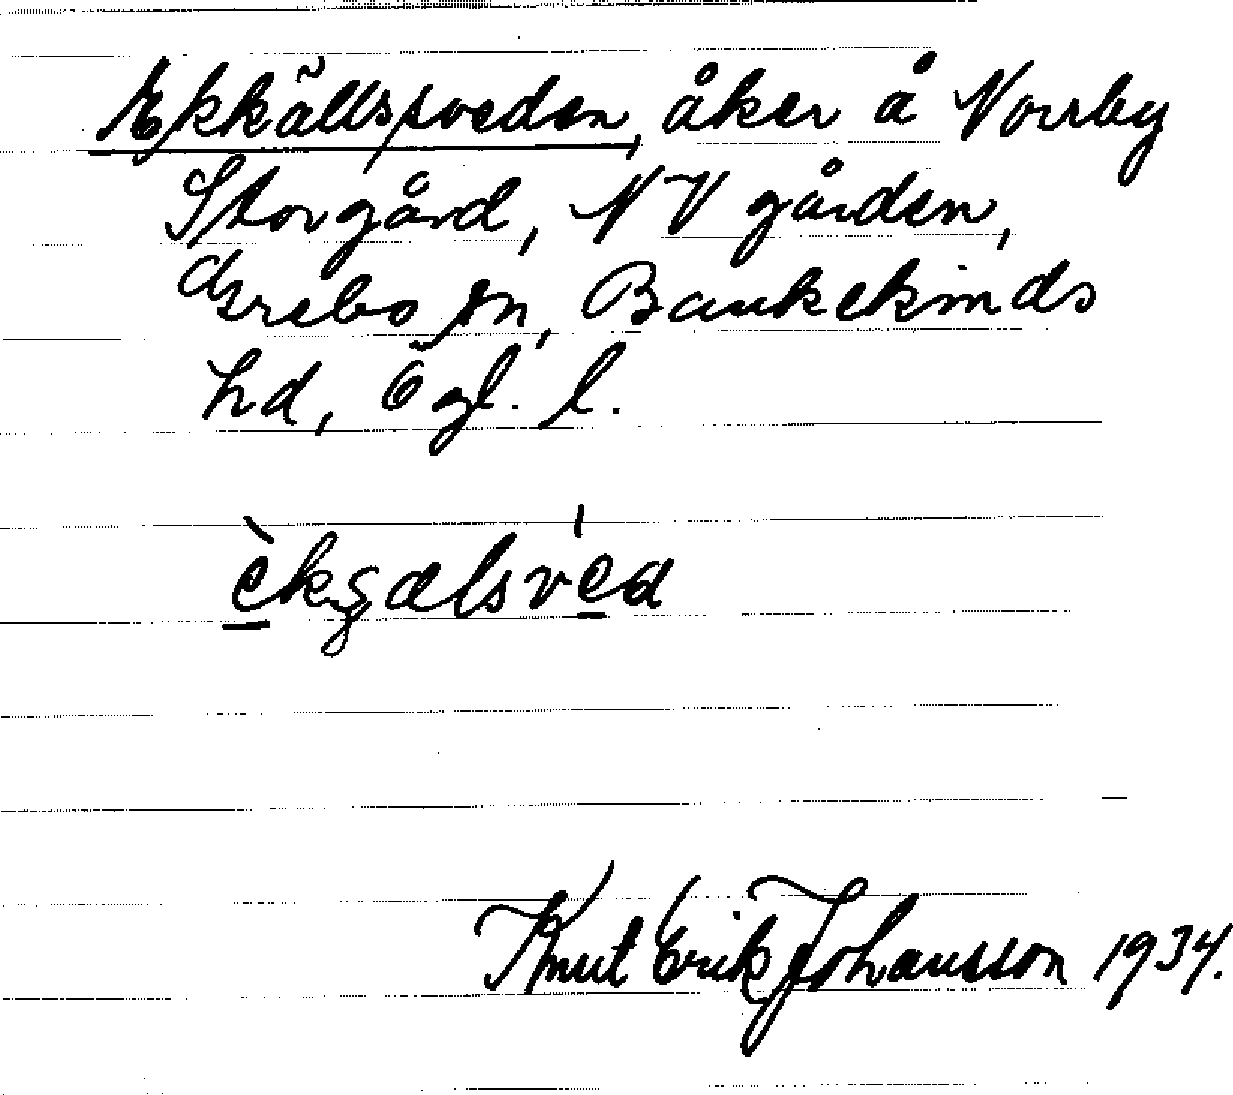 Ekkällssveden, åker å Norrby
Storgård, NV gården,
Grebo sn, Bankekinds
hd, Ögl. l.
èkʂælsvéa
Knut Erik Johansson 1934.